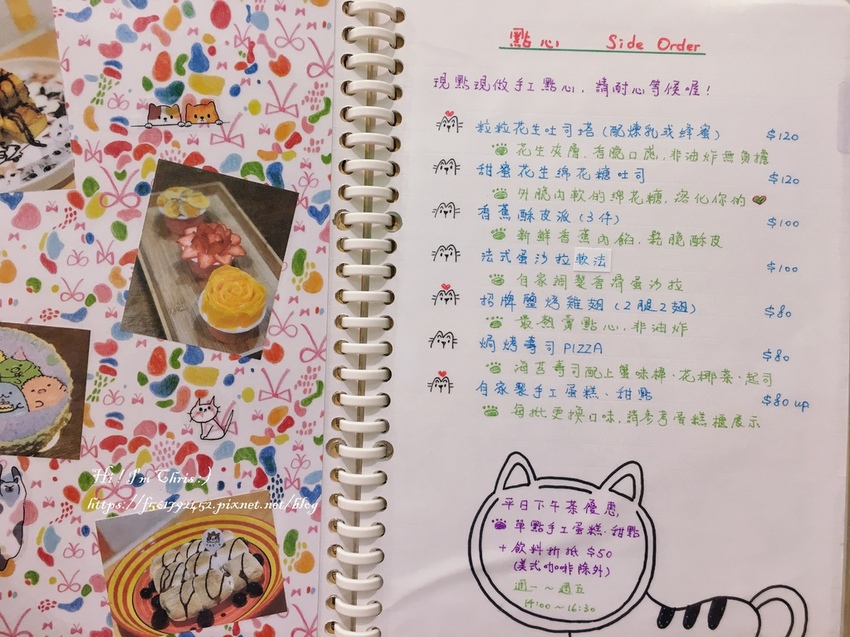 點心 Side Order
現點現做手工點心,請耐心等候喔!
粒粒花生吐司塔(配煉乳或蜂蜜) $120
花生夾層,香脆口感,非油炸無負擔
甜蜜花生綿花糖吐司 $120
外脆內軟的綿花糖,溶化你的
香蕉酥皮派(3件) $100
新鮮香蕉內餡,鬆脆酥皮
法式蛋沙拉軟法 $100
自家調製香滑蛋沙拉
招牌鹽烤雞翅(2腿2翅) $80
最熱賣點心,非油炸
焗烤壽司PIZZA $80
海苔壽司配上蟹味棒、花椰菜、起司
自家製手工蛋糕、甜點 $80 up
每批更換口味,請參考蛋糕櫃展示
平日下午茶優惠,
單點手工蛋糕、甜點
+飲料折抵$50
(美式咖啡除外)
週一~週五
14:00~16:30
"Hi ! I'm Chris :)
https://f501791452.pixnet.net/blog